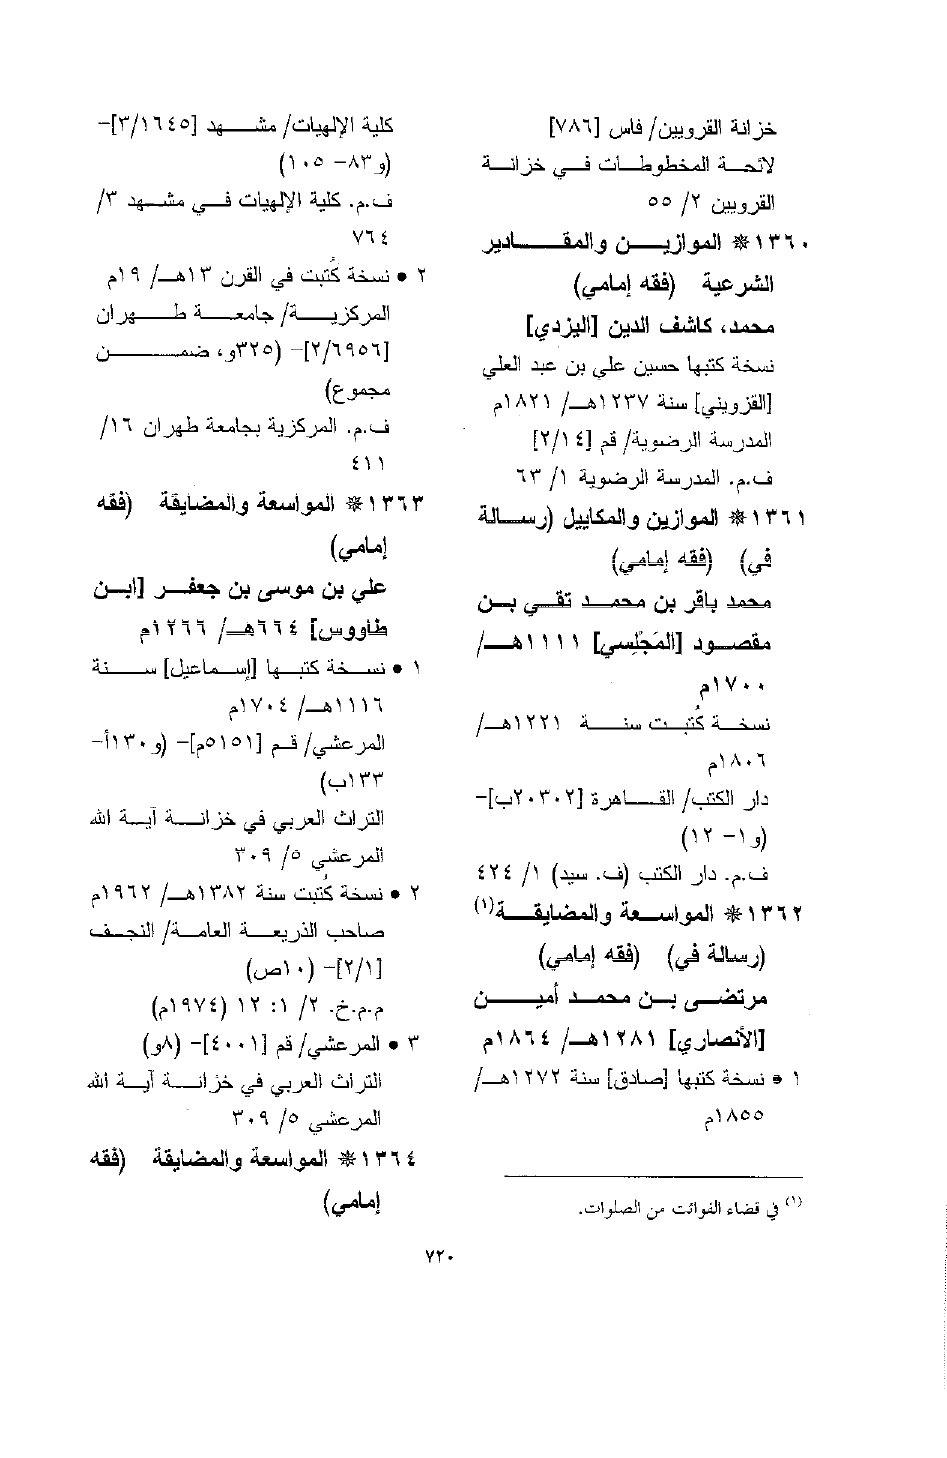 خزانة القرويين/ فاس [٧٨٦]
لائحة المخطوطات في خزانة
القرويين ٢/ ٥٥
١٣٦٠ * الموازين والمقادير
الشرعية (فقه إمامي)
محمد، كاشف الدين [اليزدي]
نسخة كتبها حسين علي بن عبد العلي
[القزويني] سنة ١٢٣٧هـ/ ١٨٢١م
المدرسة الرضوية/ قم [٢/١٤]
ف.م. المدرسة الرضوية ١/ ٦٣
١٣٦١ * الموازين والمكاييل (رسالة
في) (فقه إمامي)
محمد باقر بن محمد تقي بن
مقصود [المَجْلِسي] ١١١١هـ/
١٧٠٠م
نسخة كُتبت سنة ١٢٢١هـ/
١٨٠٦م
دار الكتب/ القاهرة [٢٠٣٠٢ب]-
(و١- ١٢)
ف.م. دار الكتب (ف. سيد) ١/ ٤٢٤
١٣٦٢ * المواسعة والمضايقة(١)
(رسالة في) (فقه إمامي)
مرتضى بن محمد أمين
[الأنصاري] ١٢٨١هـ/ ١٨٦٤م
١ • نسخة كتبها [صادق] سنة ١٢٧٢هـ/
١٨٥٥م
(١) في قضاء الفوائت من الصلوات.
كلية الإلهيات/ مشهد [٣/١٦٤٥]-
(و٨٣- ١٠٥)
ف.م. كلية الإلهيات في مشهد ٣/
٧٦٤
٢ • نسخة كُتبت في القرن ١٣هـ/ ١٩م
المركزية/ جامعة طهران
[٢/٦٩٥٦]- (٣٢٥و، ضمن
مجموع)
ف.م. المركزية بجامعة طهران ١٦/
٤١١
١٣٦٣ * المواسعة والمضايقة (فقه
إمامي)
علي بن موسى بن جعفر [ابن
طاووس] ٦٦٤هـ/ ١٢٦٦م
١ • نسخة كتبها [إسماعيل] سنة
١١١٦هـ/ ١٧٠٤م
المرعشي/ قم [٥١٥١م]- (و١٣٠أ-
١٣٣ب)
التراث العربي في خزانة آية الله
المرعشي ٥/ ٣٠٩
٢ • نسخة كُتبت سنة ١٣٨٢هـ/ ١٩٦٢م
صاحب الذريعة العامة/ النجف
[٢/١]- (١٠ص)
م.م.خ. ٢/ ١: ١٢ (١٩٧٤م)
٣ • المرعشي/ قم [٤٠٠١]- (٨و)
التراث العربي في خزانة آية الله
المرعشي ٥/ ٣٠٩
١٣٦٤ * المواسعة والمضايقة (فقه
إمامي)
٧٢٠